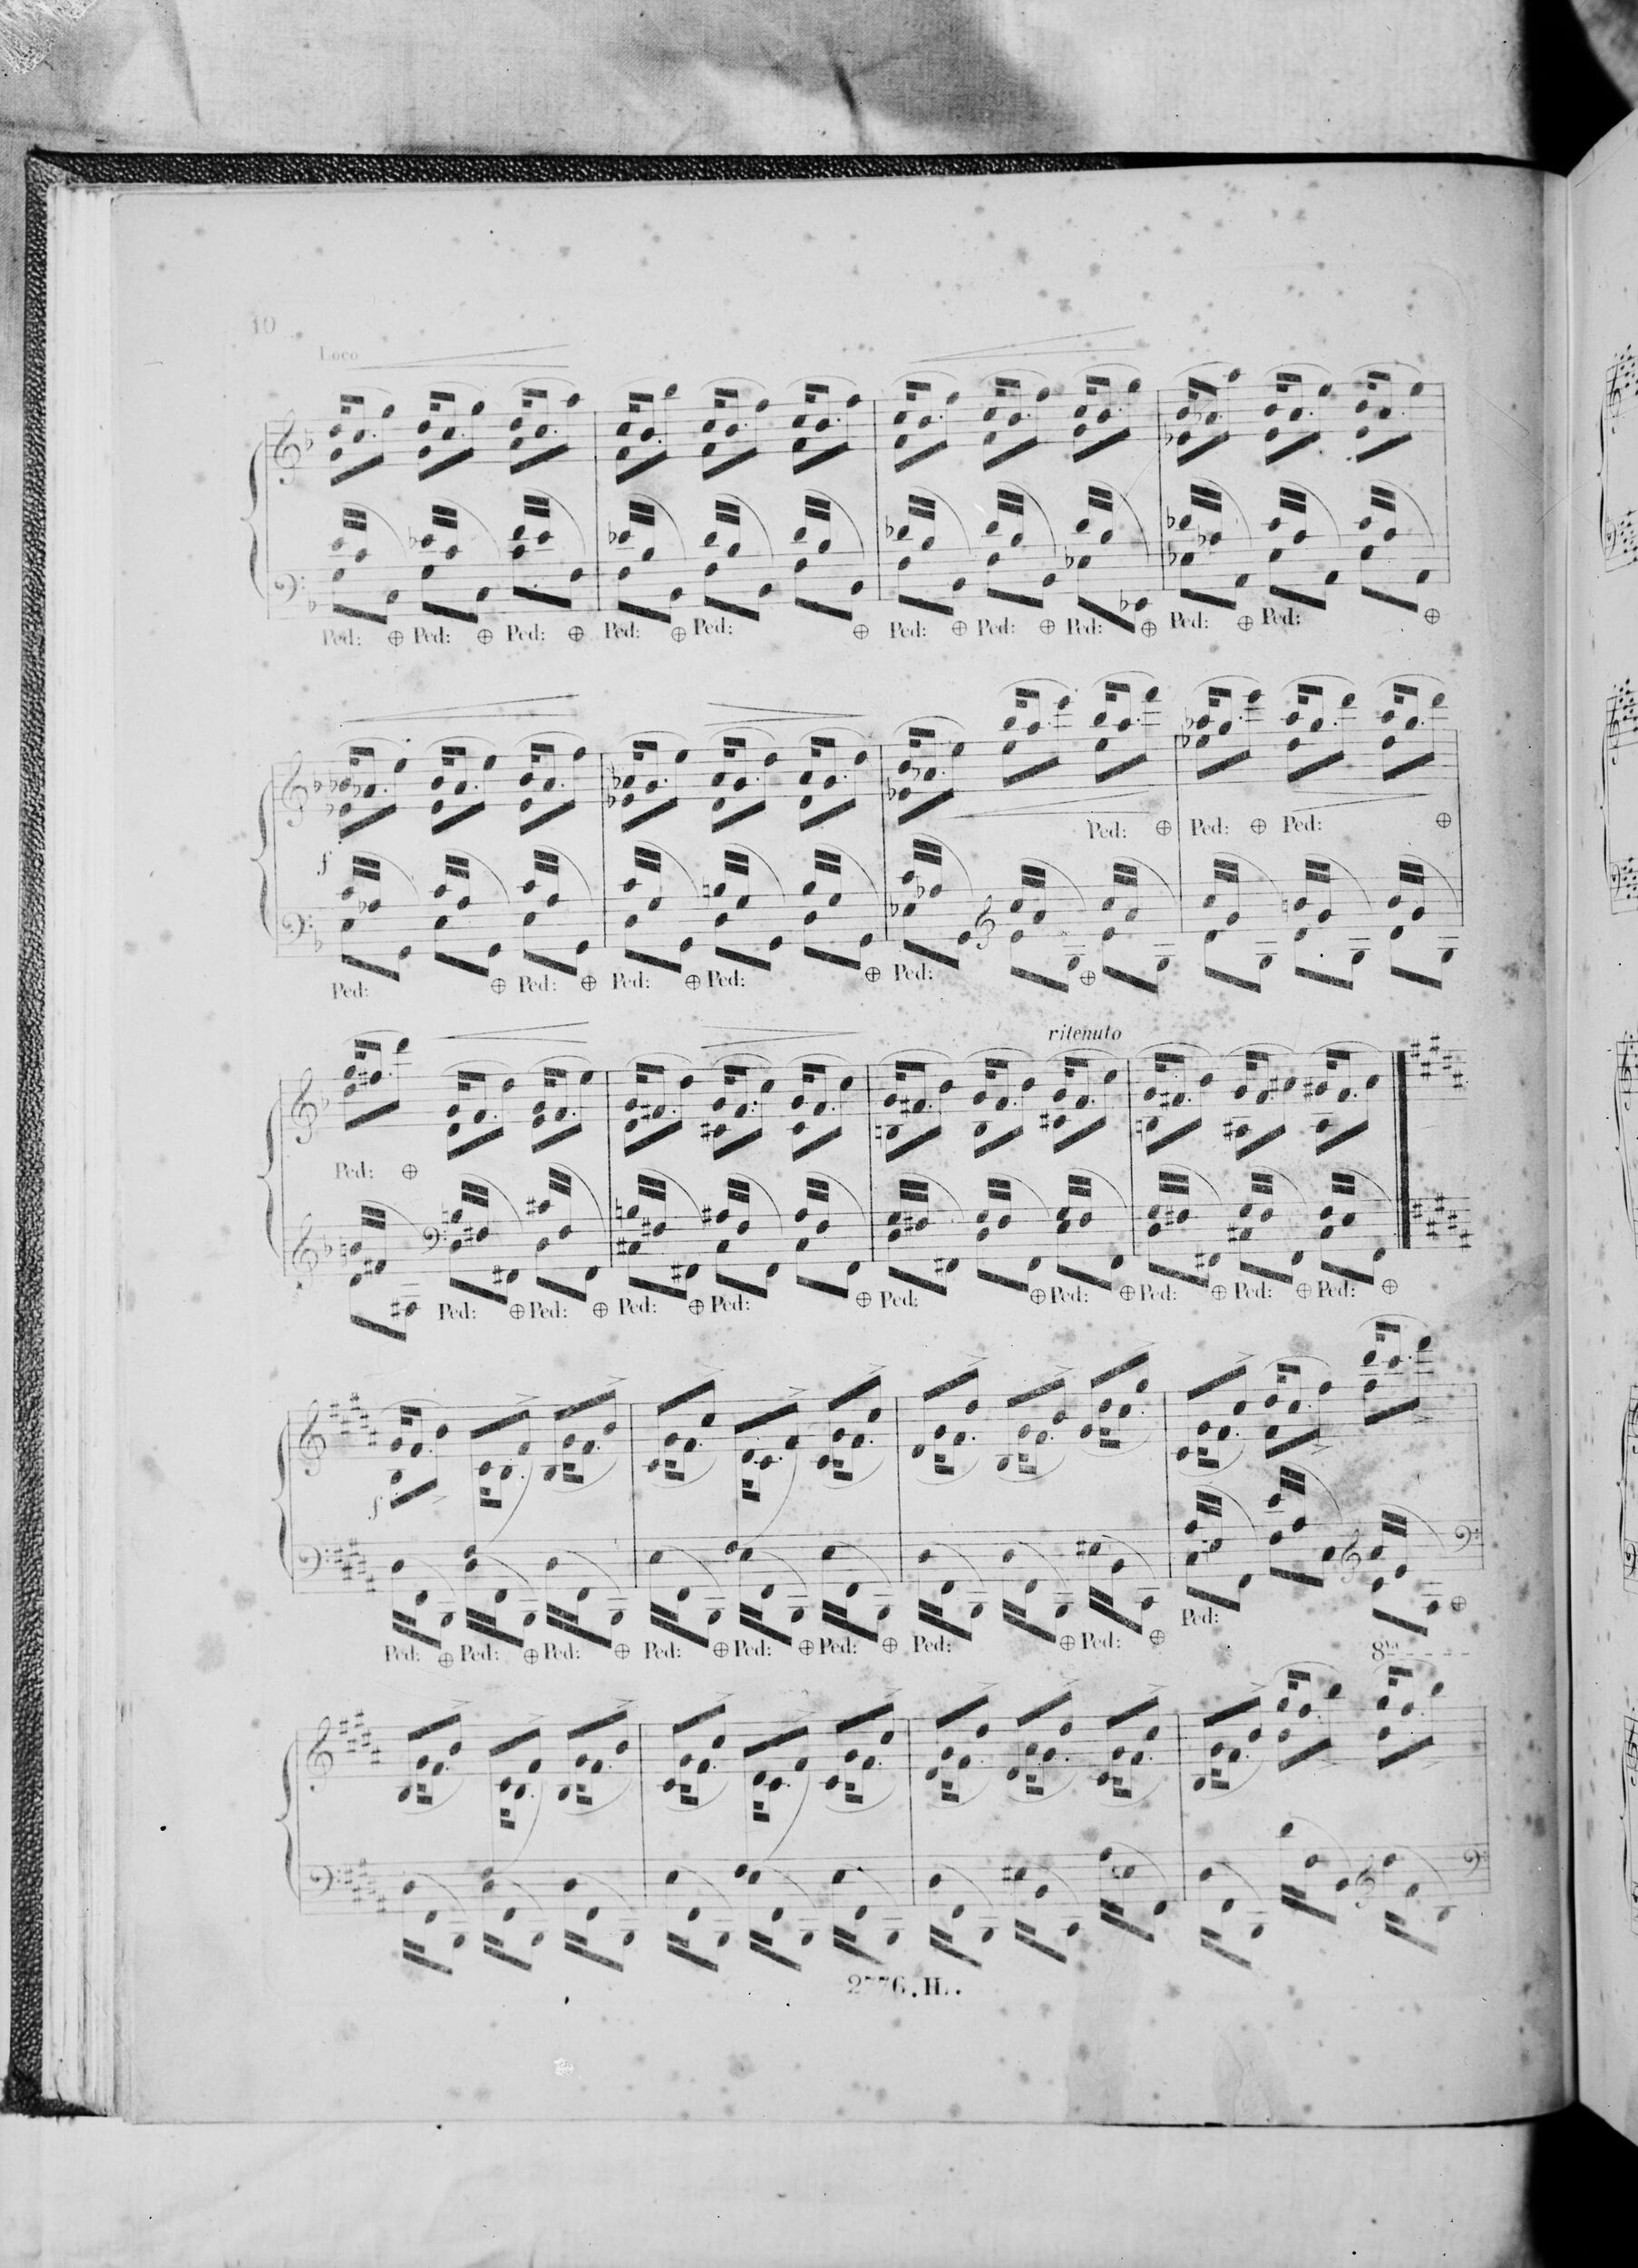 10
Loco
Ped: Ped: Ped: Ped: Ped: Ped: Ped: Ped: Ped: Ped:
Ped: Ped: Ped:
f
Ped: Ped: Ped: Ped: Ped:
ritenuto
Ped:
Ped: Ped: Ped: Ped: Ped: Ped: Ped: Ped: Ped:
f
Ped: Ped: Ped: Ped: Ped: Ped: Ped: Ped: Ped:
8va
2776.H.